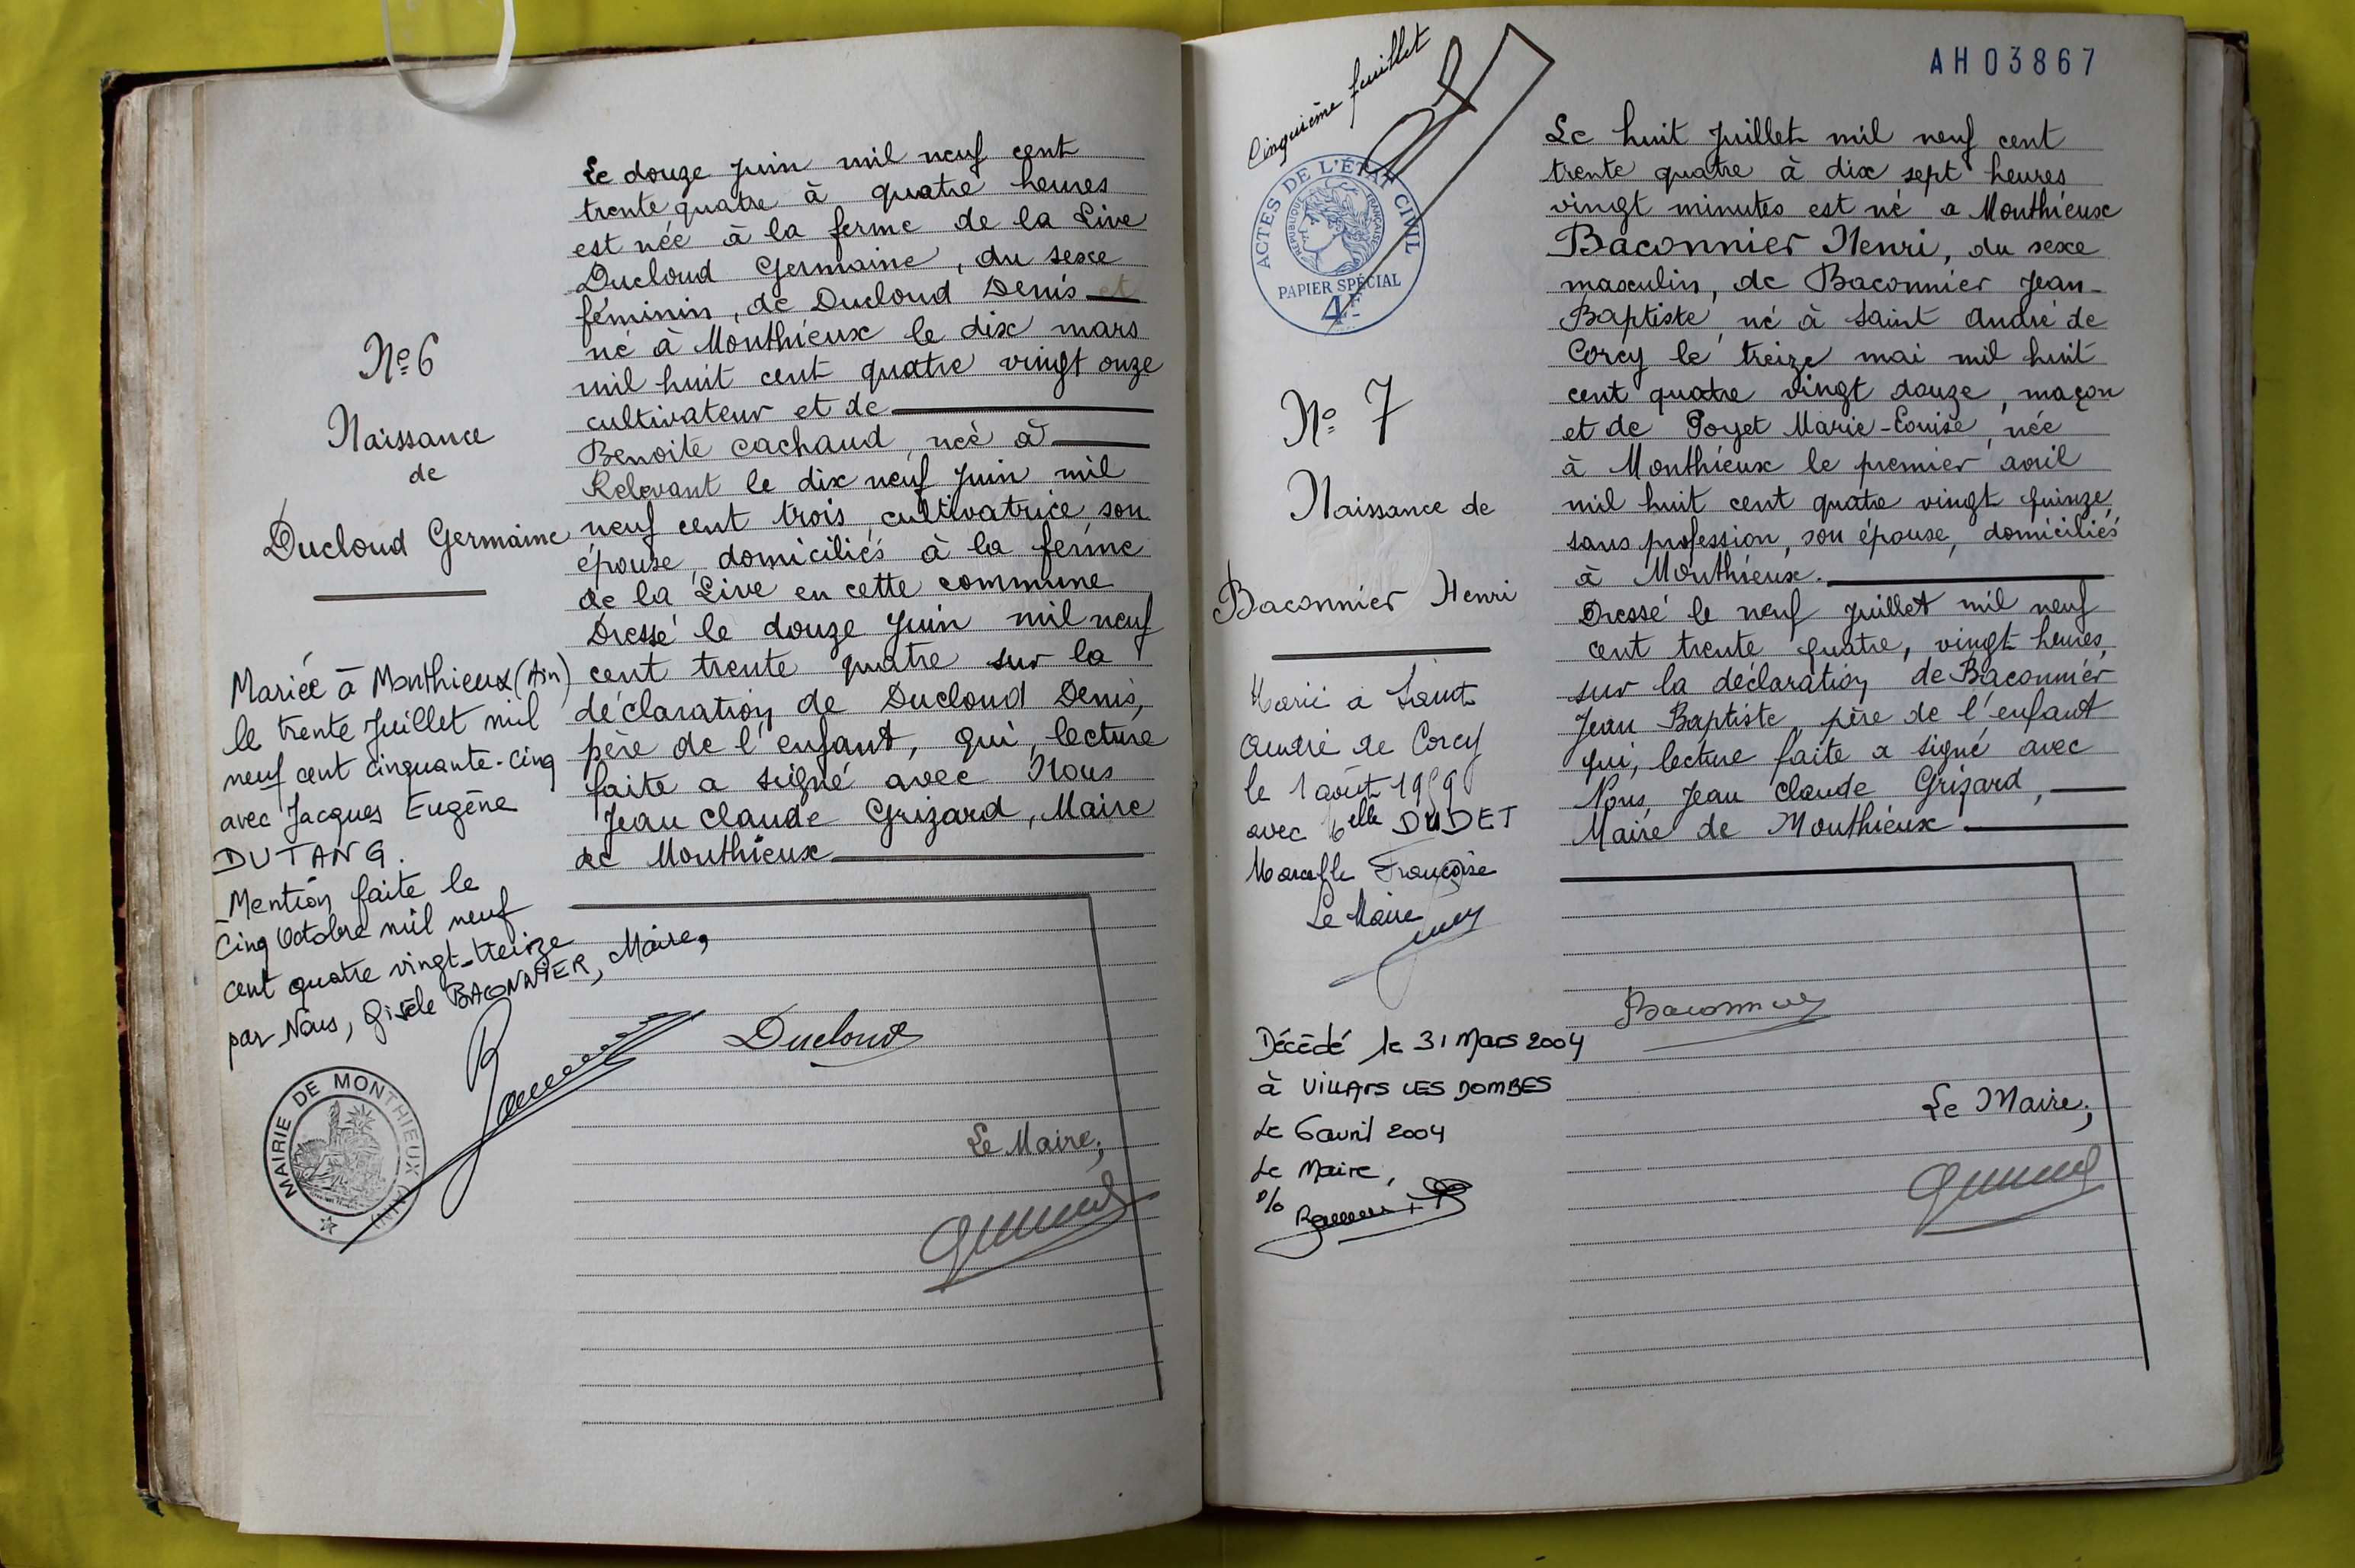 Le douze juin mil neuf cent
trente quatre à quatre heures
est née à la ferme de la Live
Ducloud Germaine, du sexe
féminin, de Ducloud Denis et
né à Monthieux le dix mars
mil huit cent quatre vingt onze
cultivateur et de
Benoite Cachaud, née à
Relevant le dix neuf juin mil
neuf cent trois, cultivatrice, son
épouse, domiciliés à la ferme
de la Live en cette commune
Dressé le douze juin mil neuf
cent trente quatre sur la
déclaration de Ducloud Denis,
père de l'enfant, qui, lecture
faite a signé avec Nous
Jean Claude Grizard, Maire
de Monthieux
Ducloud
Le Maire,
No 6
Naissance
de
Ducloud Germaine
Mariée à Monthieux (Ain)
le trente Juillet mil
neuf cent cinquante-cinq
avec Jacques Eugène
DUTANG.
Mention faite le
Cinq Octobre mil neuf
cent quatre vingt-treize
par Nous, Gisèle BACONNIER, Maire,
MAIRIE DE MONTHIEUX (AIN)
AH03867
Cinquième feuillet
ACTES DE L'ÉTAT CIVIL
RÉPUBLIQUE FRANÇAISE
PAPIER SPÉCIAL
4F
No 7
Naissance de
Baconnier Henri
Marié à Saint
André de Corcy
le 1 août 19
avec elle DUDET
Marcelle Françoise
Le Maire
Décédé le 31 Mars 2004
à VILLARS LES DOMBES
Le 6 avril 2004
Le Maire,
Le huit juillet mil neuf cent
trente quatre à dix sept heures
vingt minutes est né a Monthieux
Baconnier Henri, du sexe
masculin, de Baconnier Jean-
Baptiste né à Saint André de
Corcy le treize mai mil huit
cent quatre vingt douze, maçon
et de Poyet Marie-Louise née
à Monthieux le premier avril
mil huit cent quatre vingt quinze,
sans profession, son épouse, domiciliés
à Monthieux.
Dressé le neuf juillet mil neuf
cent trente quatre, vingt heures,
sur la déclaration de Baconnier
Jean Baptiste, père de l'enfant
qui, lecture faite a signé avec
Nous, Jean Claude Grizard,
Maire de Monthieux
Baconnier
Le Maire,